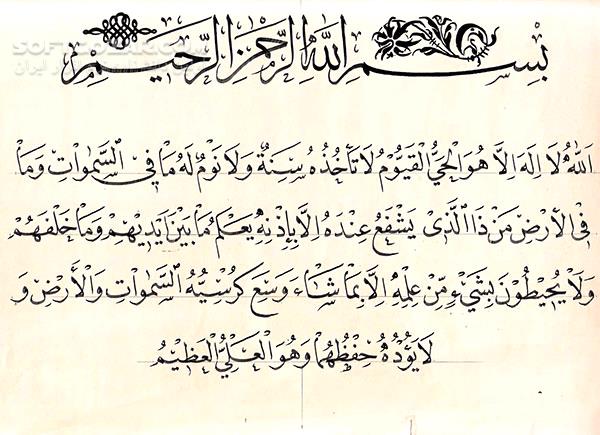 بِسْمِ اللهِ الرَّحْمٰنِ الرَّحِيمِ
اَللهُ لَا اِلٰهَ اِلَّا هُوَ الْحَيُّ الْقَيُّومُ لَا تَأْخُذُهُ سِنَةٌ وَلَا نَوْمٌ لَهُ مَا فِي السَّمٰوَاتِ وَمَا
فِي الْأَرْضِ مَنْ ذَا الَّذِي يَشْفَعُ عِنْدَهُ اِلَّا بِإِذْنِهِ يَعْلَمُ مَا بَيْنَ اَيْدِيهِمْ وَمَا خَلْفَهُمْ
وَلَا يُحِيطُونَ بِشَيْءٍ مِّنْ عِلْمِهِ اِلَّا بِمَا شَاءَ وَسِعَ كُرْسِيُّهُ السَّمٰوَاتِ وَالْأَرْضَ وَ
لَا يَؤُدُهُ حِفْظُهُمَا وَهُوَ الْعَلِيُّ الْعَظِيمُ